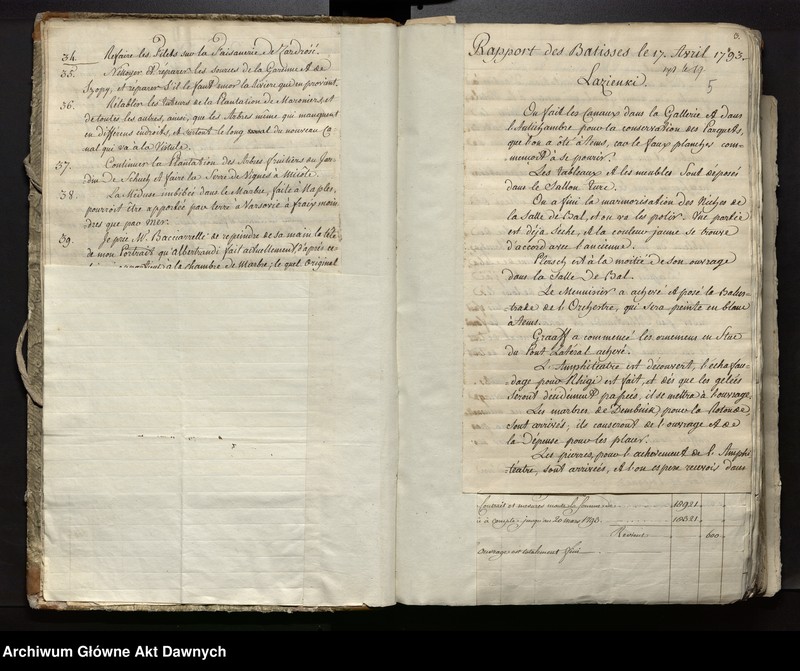 34. Refaire les Filets sur la Faisanerie de
35. Nettoyer et reparer les sources de la Garenne et de
Szopy, et réparer s'il le faut encor la riviere qui en provient.
36. Retablir les tuteurs de la Plantation de Maroniers et
de toutes les autres, ainsi, que les Arbres même qui manquent
en differens endroits, et surtout le long du nouveau Ca-
nal qui va à la Vistule.
37. Continuer la Plantation des Arbres fruitiers au Jar-
din de Schuch et faire la Serre de Vignes à
38. La Méduse imbibée dans le Marbre, faite à Naples,
pourroit être apportée par terre à Varsovie à fraix moin-
dres que par mer.
39. Je prie Mr. Bacciarelli de repeindre de sa main la tête
de mon Portrait qu'Albertrandi fait actuellement d'après ce-
à la chambre de Marbre; le quel Original
6.
Rapport des Batisses le 17. Avril 1793.
5
Lazienki.
On fait les Canaux dans la Gallerie et dans
l'Antichambre pour la conservation des Parquets,
que l'on a ôté à tems, car le faux planches com-
mençoit à se pourrir.
Les tableaux et les meubles sont déposés
dans le Sallon turc.
On a fini la marmorisation des Niches de
la Salle de Bal, et on va les polir. Une partie
est déja seche, et la couleur jaune se trouve
d'accord avec l'ancienne.
Plersch est à la moitié de son ouvrage
dans la Salle de Bal.
Le Menuisier a achevé et posé la Balus-
trade de l'Orchestre, qui sera peinte en blanc
à tems.
Graaff a commencé les ornemens en Stuc
du Pont Latéral achevé.
L'Amphitéatre est découvert, l'échafau-
dage pour Righi est fait, et dès que les gelées
seront décidément passées, il se mettra à l'ouvrage.
Les marbres de Dembnik pour la Rotonde,
sont arrivés; ils causeront de l'ouvrage et de
la dépense pour les placer.
Les pierres, pour l'achevement de l'Amphi-
téatre, sont arrivées, et l'on espere recevoir dans
Contrait et mesures monte la somme de 18921
à compte jusqu'au 20 mars 1793 18321
Revient 600
ouvrage est totalement fini
Archiwum Główne Akt Dawnych